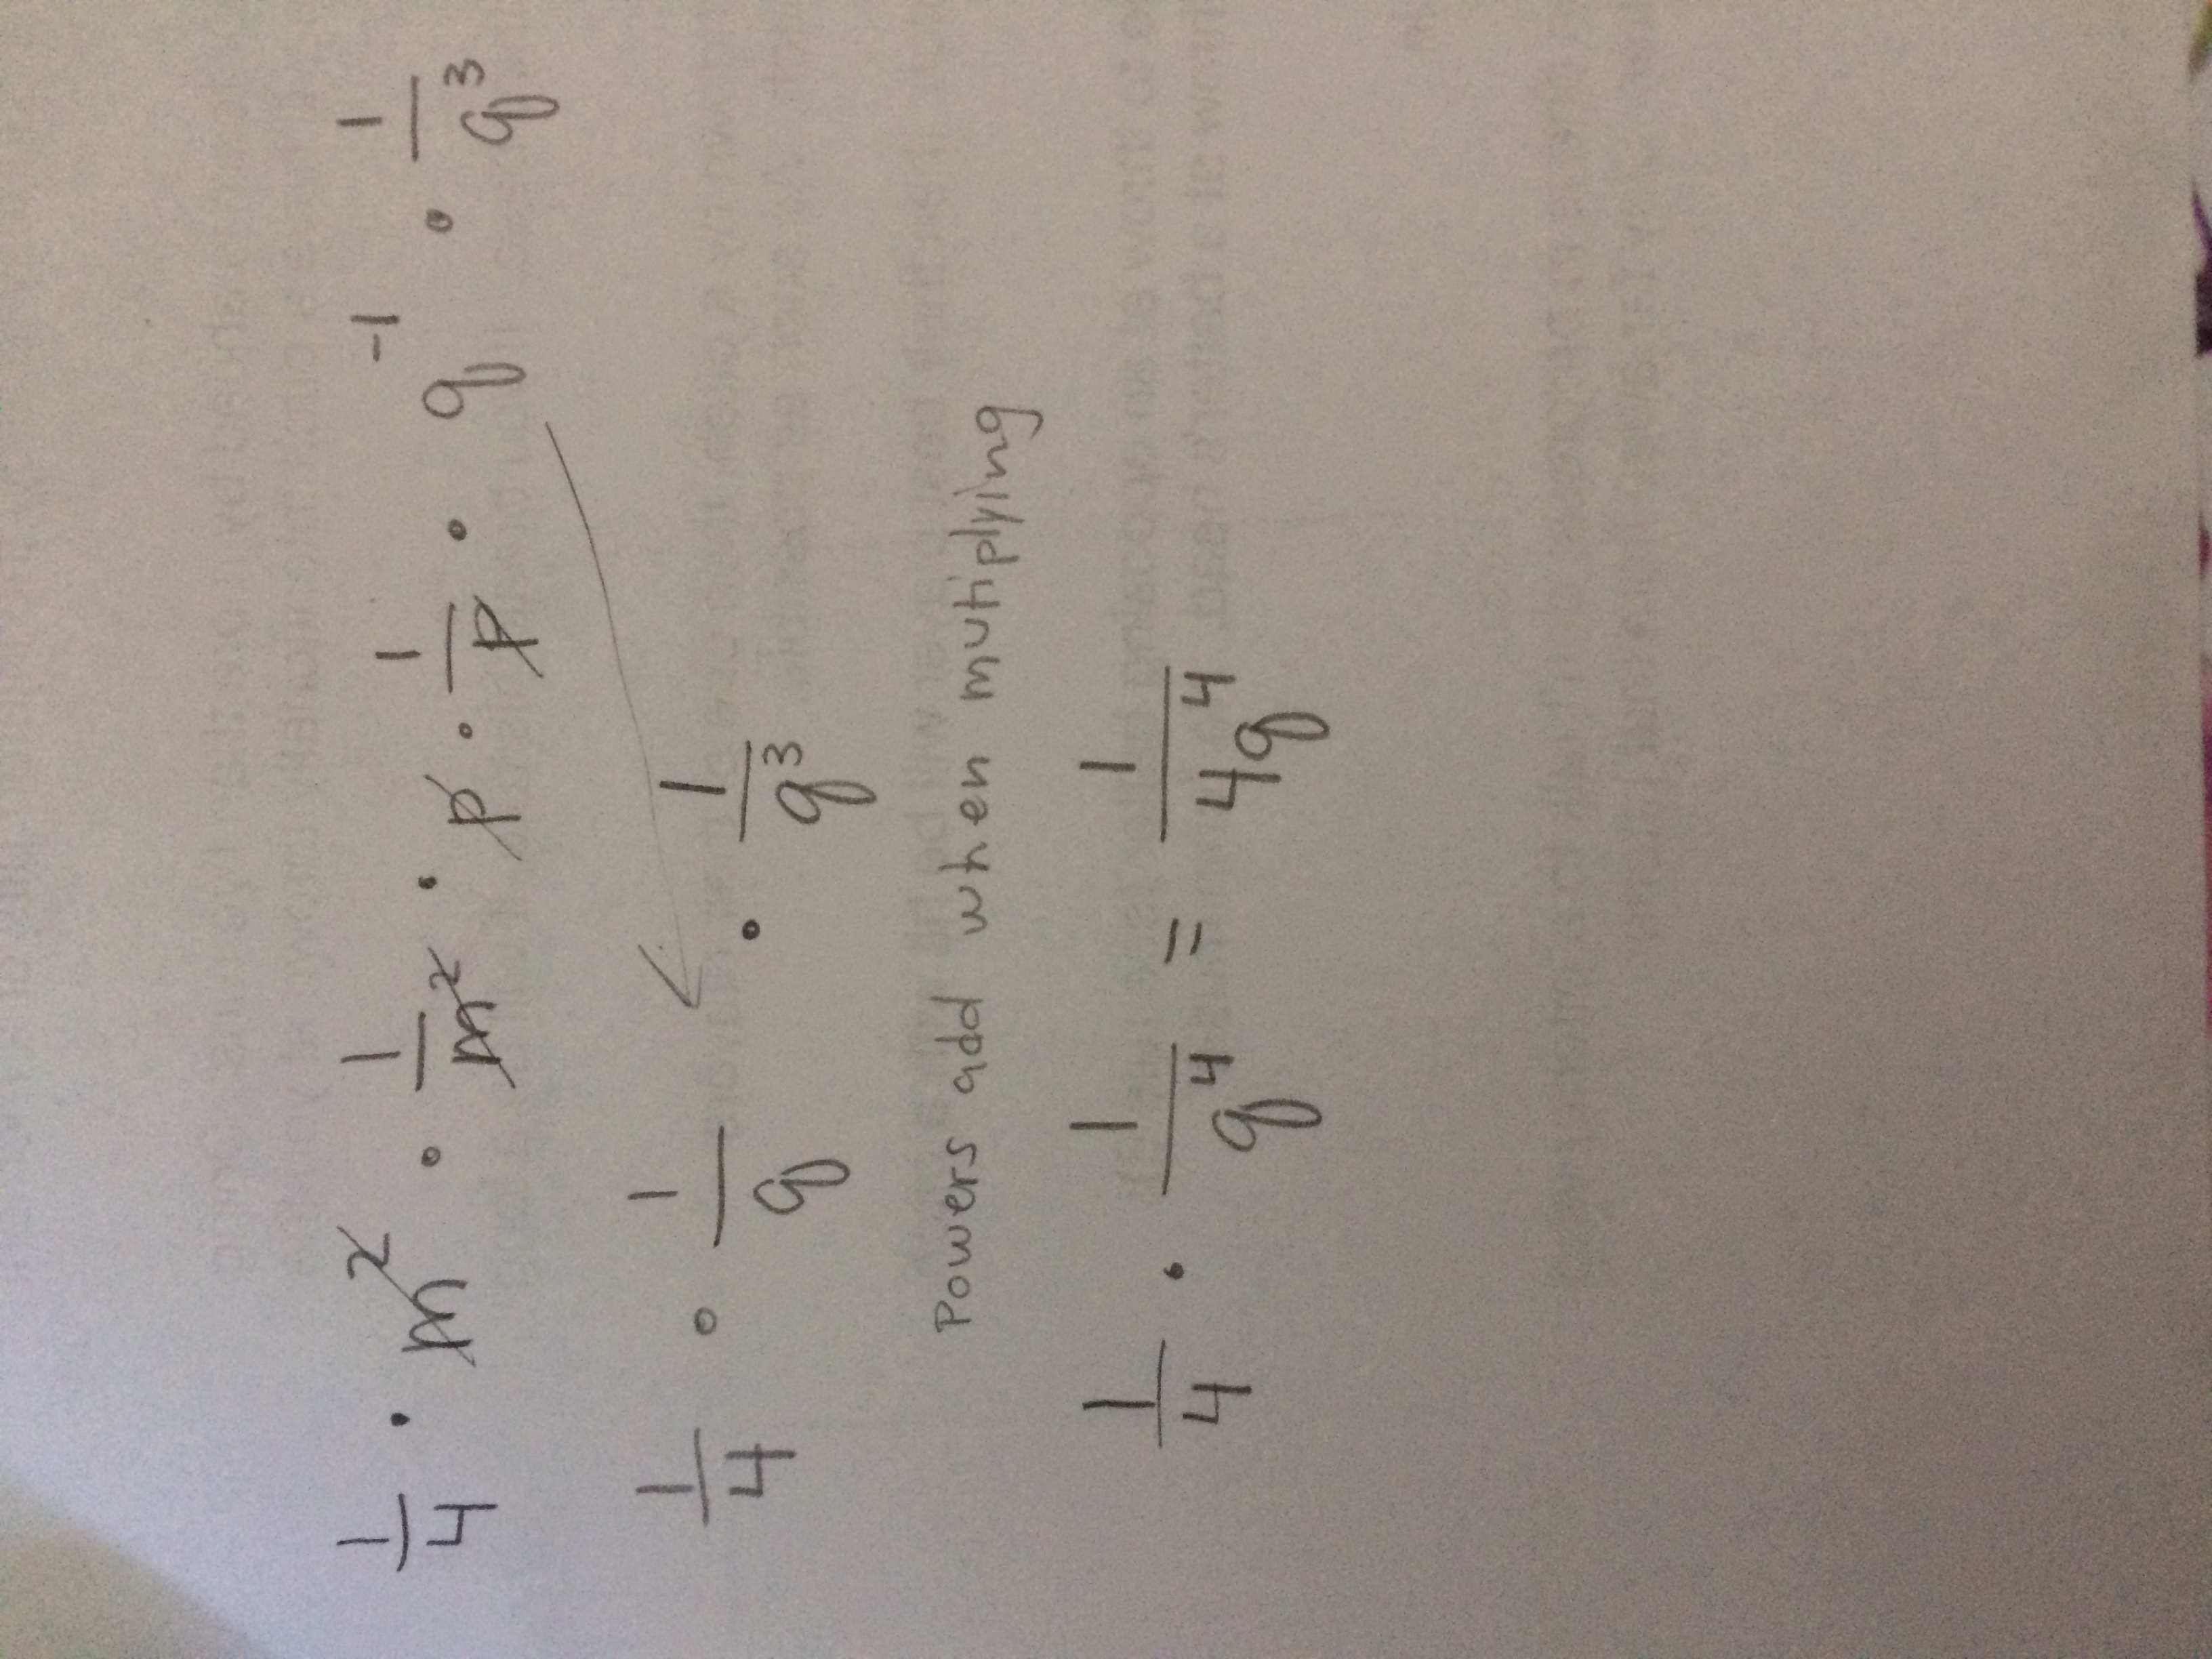 1/4 · m² · 1/m² · p · 1/p · q⁻¹ · 1/q³
1/4 · 1/q · 1/q³
Powers add when mutiplying
1/4 · 1/q⁴ = 1/4q⁴